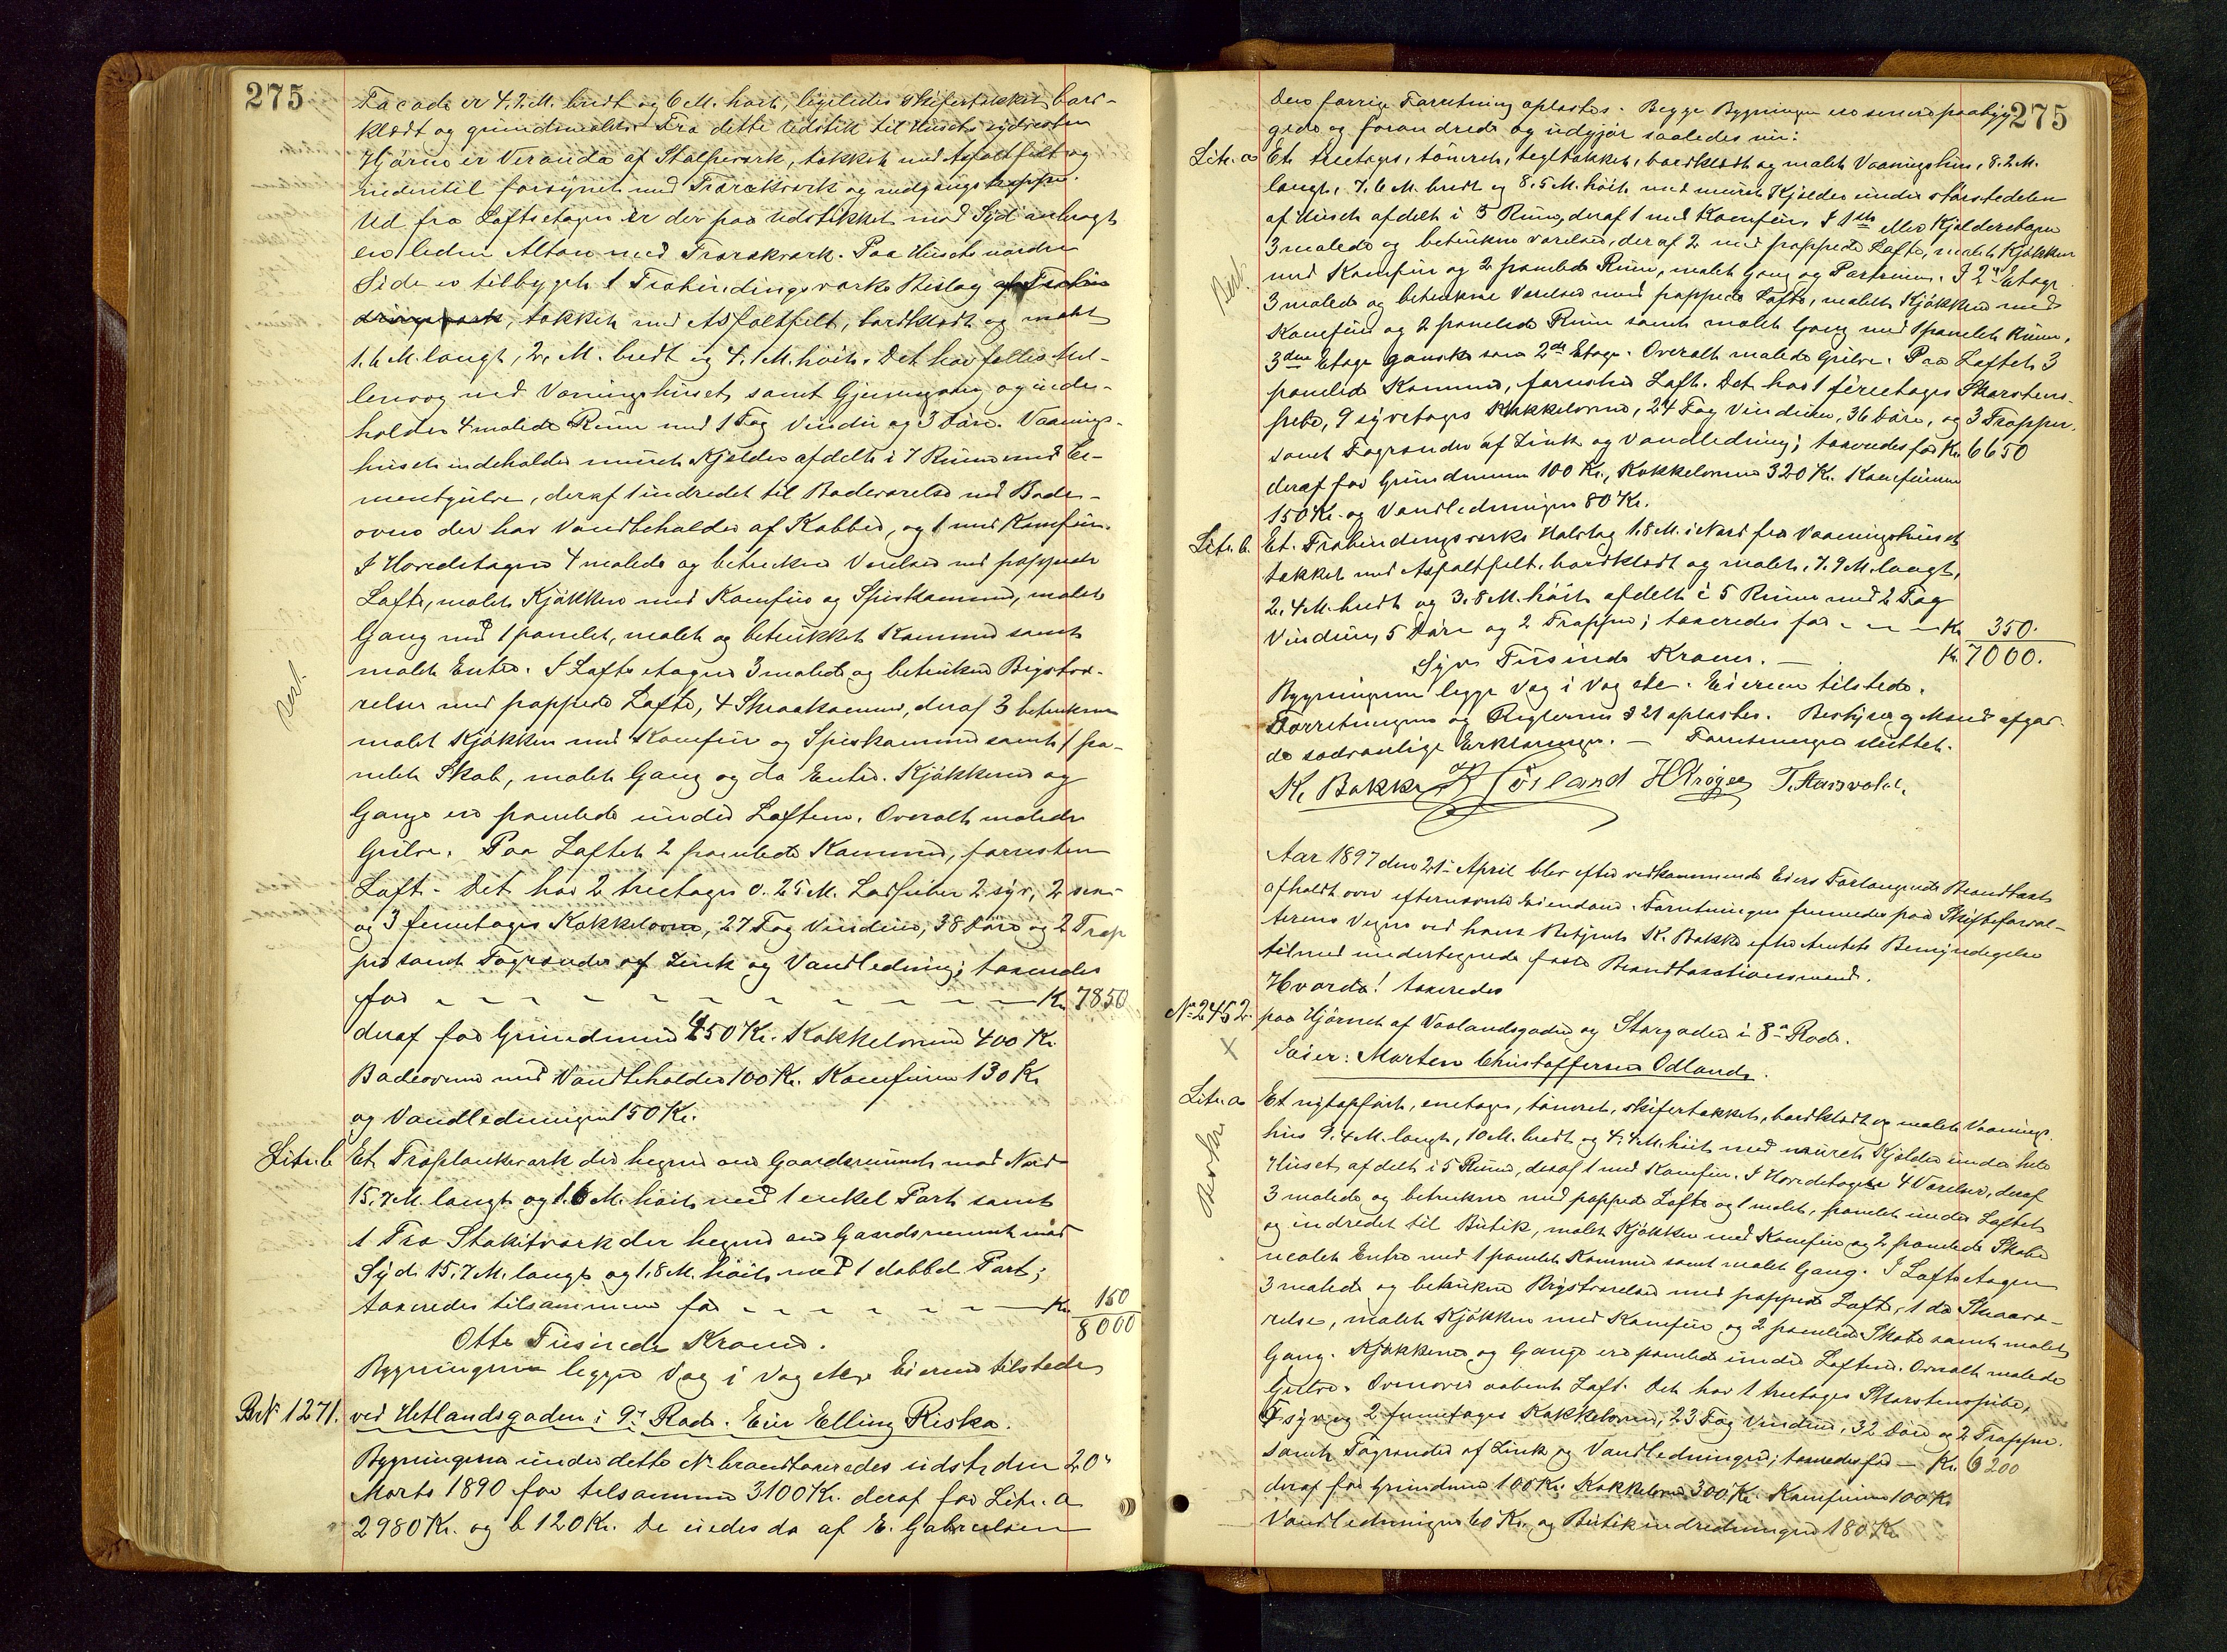 275
Facade er 4.7 M. bredt og 6 M. høit, ligeledes skifertækket, bord-
klædt og grundmalet. Fra dette Udstik til Husets sydvestre
Hjørne er Veranda af Stolpeværk, tækket med Asfaltfilt og
nedentil forsynet med Trærækværk og nedgangstrappe.
Ud fra Loftsetagen er der paa Udstikket mod Syd anbragt
en liden Altan med Trærækværk. Paa Husets nordre
Side er tilbygget 1 Træbindingsværks Bislag af Træbin
dingsværk, tækket med Asfaltfilt, bordklædt og malet
1.6 M. langt, 2, M. bredt og 4.1 M. høit. Det har fælles Mel-
lemvæg med Vaaningshuset, samt Gjennemgang, og inde-
holder 4 malede Rum med 1 Fag Vindu og 3 Døre. Vaanings-
huset indeholder muret Kjelder afdelt i 7 Rum med Ce-
mentgulve, deraf 1 indredet til Badeværelse med Bade-
ovn der har Vandbeholder af Kobber, og 1 med Komfur.
I Hovedetagen 4 malede og betrukne Værelser med pappede
Lofte, malet Kjøkken med Komfur og Spiskammer, malet
Gang med 1 panelet, malet og betrukket Kammer samt
malet Entre. I Loftsetagen 3 malede og betrukne Bigstvæ-
relser med pappede Lofte, 4 Skraakammer, deraf 3 betrukne
malet Kjøkken med Komfur og Spiskammer samt 1 pa-
nelet Skab, malet Gang og do Entre. Kjøkkenet og
Gange ere panelede under Loftene. Overalt malede
Gulve. Paa Loftet 2 panelede Kammer, forresten
Loft. Det har 2 treetages 0.25 M. Ladpiber 2 syv, 2 sex-
og 3 femetages Kakkelovne, 27 Fag Vinduer, 38 Døre og 2 Trap
per samt Tagrender af Zink og Vandledning; taxeredes
for - - - Kr. 7850
deraf for Grundmuren 150 Kr. Kakkelovnene 400 Kr.
Badeovnen med Vandbeholder 100 Kr. Komfurene 130 Kr.
og Vandledningen 150 Kr.
Litr. b Et Træplankeværk der hegner om Gaardsrummet mod Nord
15.7 M. langt og 1.6 M. høit med 1 enkel Port samt
1 Træ Stakitværk der hegner om Gaardsrummet mod
Syd 15.7 M. langt og 1.8 M. høit med 1 dobbel Port;
taxeredes tilsammen for - - - Kr. 150
8000
Otte Tusinde Kroner.
Bygningerne ligge Væg i Væg etc. Eieren tilstede
Br№ 1271. ved Hetlandsgaden i 9de Rode. Eier Elling Riska.
Bygningerne under dette № brandtaxeredes sidst den 20de
Marts 1890 for tilsammen 3100 Kr. deraf for Litr. a
2980 Kr. og b 120 Kr. De eiedes da af E. Gabrielsen
Best.
275
Den forrige Forretning oplæstes. Begge Bygninger ere senere paabyg-
gede og forandrede og udgjør saaledes nu:
Litr. a Et treetages, tømret, tegltækket, bordklædt og malet Vaaningshus, 8.2 M.
langt, 7.6 M. bredt og 8.5 M. høit med muret Kjelder under størstedelen
af Huset afdelt i 3 Rum, deraf 1 med Komfur. I 1ste eller Kjelderetagen
3 malede og betrukne værelser, deraf 2 med pappede Lofte, malet Kjøkken
med Komfur og 2 panelede Rum, malet Gang og Portrum. I 2den Etage
3 malede og betrukne Værelser med pappede Lofte, malet Kjøkken med
Komfur og 2 panelede Rum samt malet Gang med 1 panelet Rum,
3die Etage ganske som 2den Etage. Overalt malede Gulve. Paa Loftet 3
panelede Kammer, forresten Loft. Det har 1 fireetages Skorstens-
pibe, 9 syvetages Kakkelovne, 24 Fag Vinduer, 36 Døre, og 3 Trapper.
samt Tagrender af Zink og Vandledning; taxeredes for Kr. 6650
deraf for Grundmuren 100 Kr., Kakkelovnene 320 Kr. Komfurene
150 Kr. og Vandledningen 80 Kr.
Litr. b. Et Træbindingsværks Halvtag 1.8 M. i Nord fra Vaaningshuset
tækket med Asfaltfilt, bordklædt og malet, 7.9 M. langt,
2.4 M. bredt og 3.8 M. høit afdelt i 5 Rum med 2 Fag
Vinduer, 5 Døre og 2 Trapper; taxeredes for - - - Kr. 350.
Syv Tusinde Kroner. — Kr. 7000.
Bygningerne ligge Væg i Væg etc. Eieren tilstede.
Forretningen og Reglernes § 21 oplæstes. Bestyrer og Mænd afgav
de sædvanlige Erklæringer. — Forretningen sluttet.
K. Bakke H Høiland H Krøger T. Hansvold.
Best.
Aar 1897 den 21de April blev efter vedkommende Eiers Forlangende Brandtaxt
afholdt over efternævnte Eiendom. Forretningen fremmedes paa Skifteforval-
terens Vegne ved hans Betjent K. Bakke efter Amtets Bemyndigelse
tilmed undertegnede faste Brandtaxtionsmænd.
Hvorda! taxeredes
№ 2452. paa Hjørnet af Vaalandsgaden og Storgaden i 8de Rode.
X
Eier: Morten Christoffersen Odland.
Litr. a Et nytopført, enetages, tømret, skifertækket, bordklædt og malet Vaanings-
hus 9.4 M. langt, 10 M. bredt og 4.4 M. høit med muret Kjelder under hele
Huset, afdelt i 5 Rum, deraf 1 med Komfur. I Hovedetagen 4 Værelser, deraf
3 malede og betrukne med pappede Lofte og 1 malet, panelet under Loftet
og indredet til Butik, malet Kjøkken med Komfur og 2 panelede Skabe
malet Entre med 1 panelet Kammer samt malet Gang. I Loftsetagen
3 malede og betrukne Brystværelser med pappede Lofte, 1 do Skraavæ-
relse, malet Kjøkken med Komfur og 2 panelede Skabe samt malet
Gang. Kjøkkenet og Gange ere panelede under Loftene. Overalt malede
Gulve. Ovenover aabent Loft. Det har 1 treetages Skorstenspibe,
7 syv og 2 femetages Kakkelovne, 23 Fag Vinduer, 32 Døre og 2 Trapper.
samt Tagrender af Zink og Vandledningen; taxeredes for — Kr. 6200
deraf for Grundmuren 100 Kr. Kakkelovnene 300 Kr. Komfurene 100 Kr.
Vandledningen 60 Kr. og Butikindredningen 180 Kr.